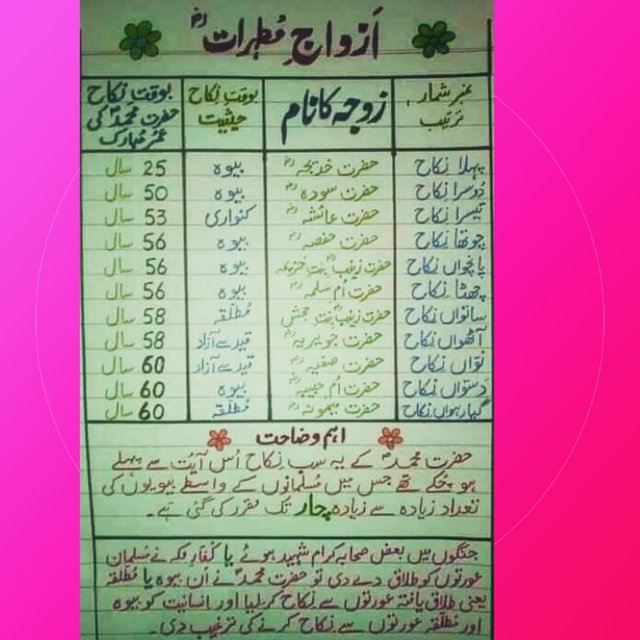 اَزواجِ مُطہرات رضہ
نمبر شمار، ترتیب | زوجہ کا نام | بوقتِ نکاح حیثیت | بوقت نکاح حضرت محمدؐ کی عمر مُبارک
پہلا نکاح | حضرت خدیجہ رضہ | بیوہ | 25 سال
دُوسرا نکاح | حضرت سودہ رضہ | بیوہ | 50 سال
تیسرا نکاح | حضرت عائشہ رضہ | کنواری | 53 سال
چوتھا نکاح | حضرت حفصہ رضہ | بیوہ | 56 سال
پانچواں نکاح | حضرت زینب بنت خزیمہ | بیوہ | 56 سال
چھٹا نکاح | حضرت اُم سلمہ رضہ | بیوہ | 56 سال
ساتواں نکاح | حضرت زینب بنت جحش | مُطلقہ | 58 سال
آٹھواں نکاح | حضرت جویریہ رضہ | قید سے آزاد | 58 سال
نواں نکاح | حضرت صفیہ رضہ | قید سے آزاد | 60 سال
دسواں نکاح | حضرت اُم حبیبہ رضہ | بیوہ | 60 سال
گیارہواں نکاح | حضرت میمونہ رضہ | مُطلقہ | 60 سال
اہم وضاحت
حضرت محمدؐ کے یہ سب نکاح اُس آیت سے پہلے
ہو چکے تھے جس میں مُسلمانوں کے واسطے بیویوں کی
تعداد زیادہ سے زیادہ چار تک مقرر کی گئی ہے۔
جنگوں میں بعض صحابہ کرام شہید ہوئے یا کُفارِ مکہ نے مُسلمان
عورتوں کو طلاق دے دی تو حضرت محمدؐ نے اُن بیوہ یا مُطلقہ
یعنی طلاق یافتہ عورتوں سے نکاح کر لیا اور انسانیت کو بیوہ
اور مُطلقہ عورتوں سے نکاح کرنے کی ترغیب دی۔